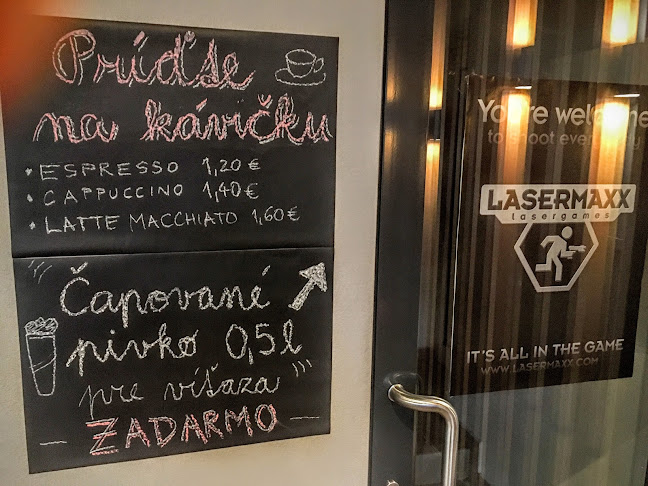 Príďse
na kávičku
• ESPRESSO 1,20€
• CAPPUCCINO 1,40€
• LATTE MACCHIATO 1,60€
Čapované
pivko 0,5l
pre víťaza
ZADARMO
You're welcome
to shoot every
LASERMAXX
lasergames
IT'S ALL IN THE GAME
WWW.LASERMAXX.COM